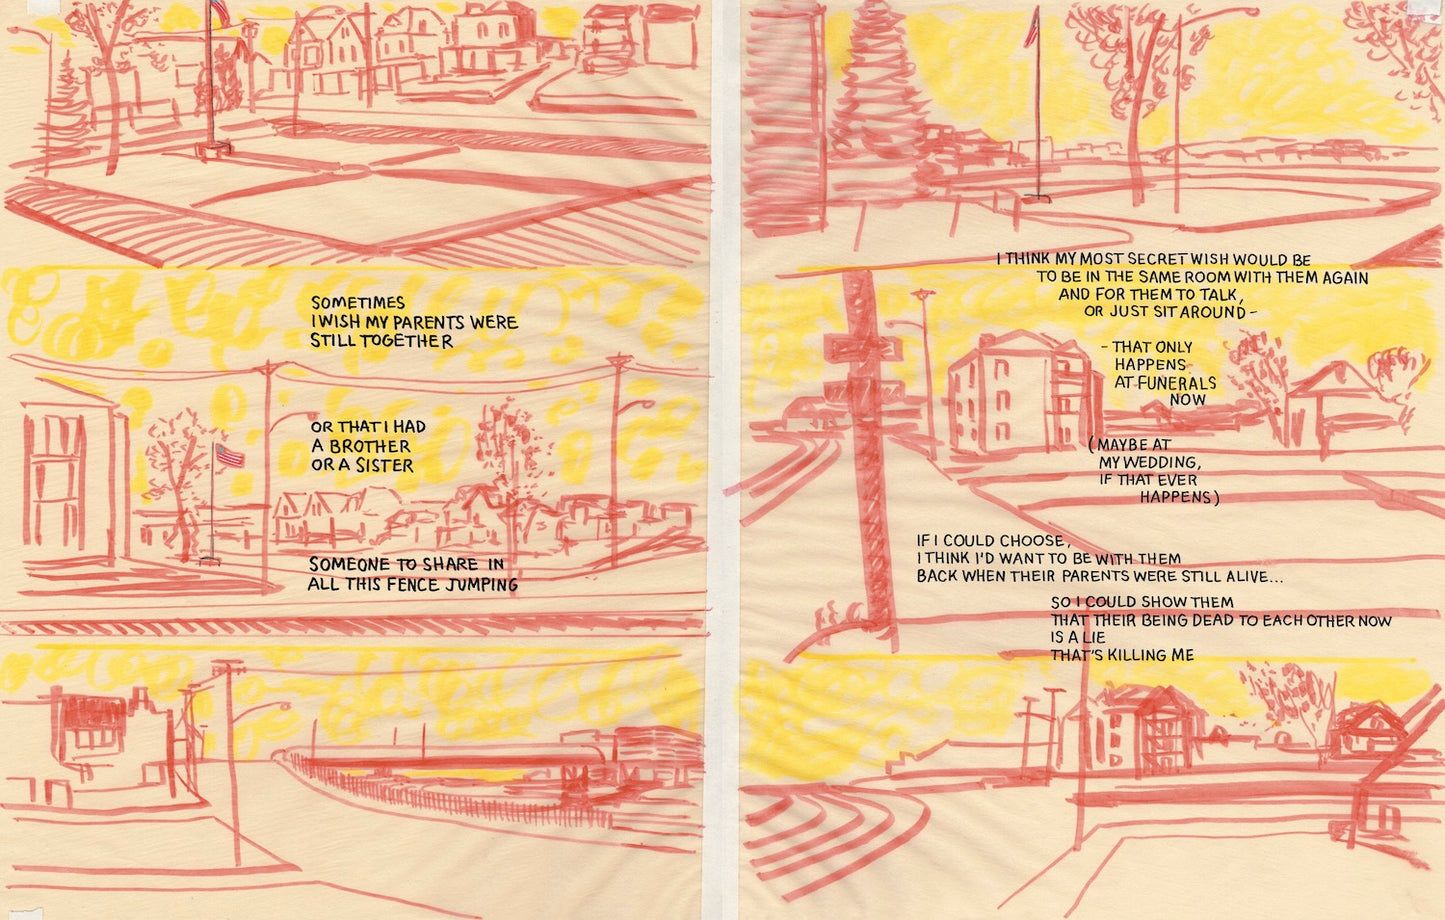 SOMETIMES
I WISH MY PARENTS WERE
STILL TOGETHER
OR THAT I HAD
A BROTHER
OR A SISTER
SOMEONE TO SHARE IN
ALL THIS FENCE JUMPING
I THINK MY MOST SECRET WISH WOULD BE
TO BE IN THE SAME ROOM WITH THEM AGAIN
AND FOR THEM TO TALK,
OR JUST SIT AROUND -
- THAT ONLY
HAPPENS
AT FUNERALS
NOW
(MAYBE AT
MY WEDDING,
IF THAT EVER
HAPPENS)
IF I COULD CHOOSE,
I THINK I'D WANT TO BE WITH THEM
BACK WHEN THEIR PARENTS WERE STILL ALIVE...
SO I COULD SHOW THEM
THAT THEIR BEING DEAD TO EACH OTHER NOW
IS A LIE
THAT'S KILLING ME